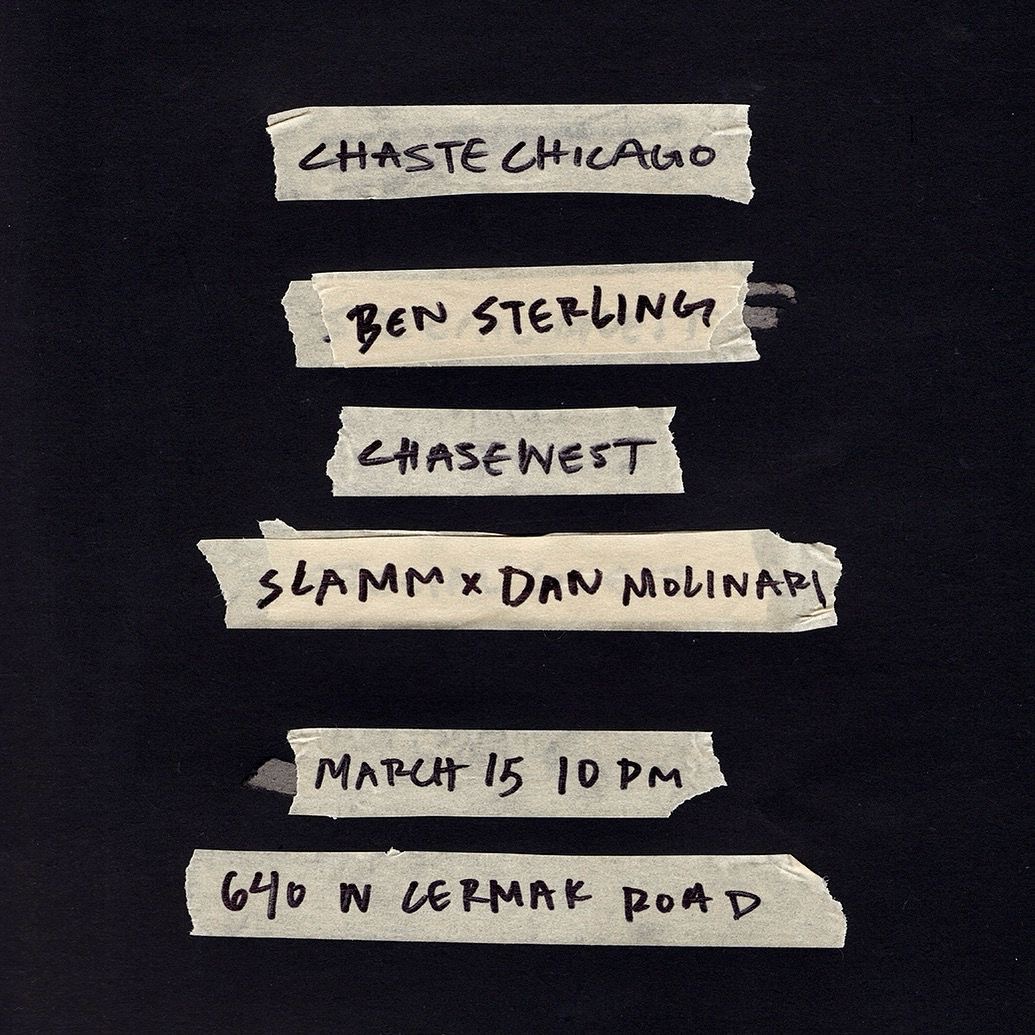 CHASTE CHICAGO
BEN STERLING
CHASEWEST
SLAMM x DAN MOLINARI
MARCH 15 10 PM
640 W CERMAK ROAD